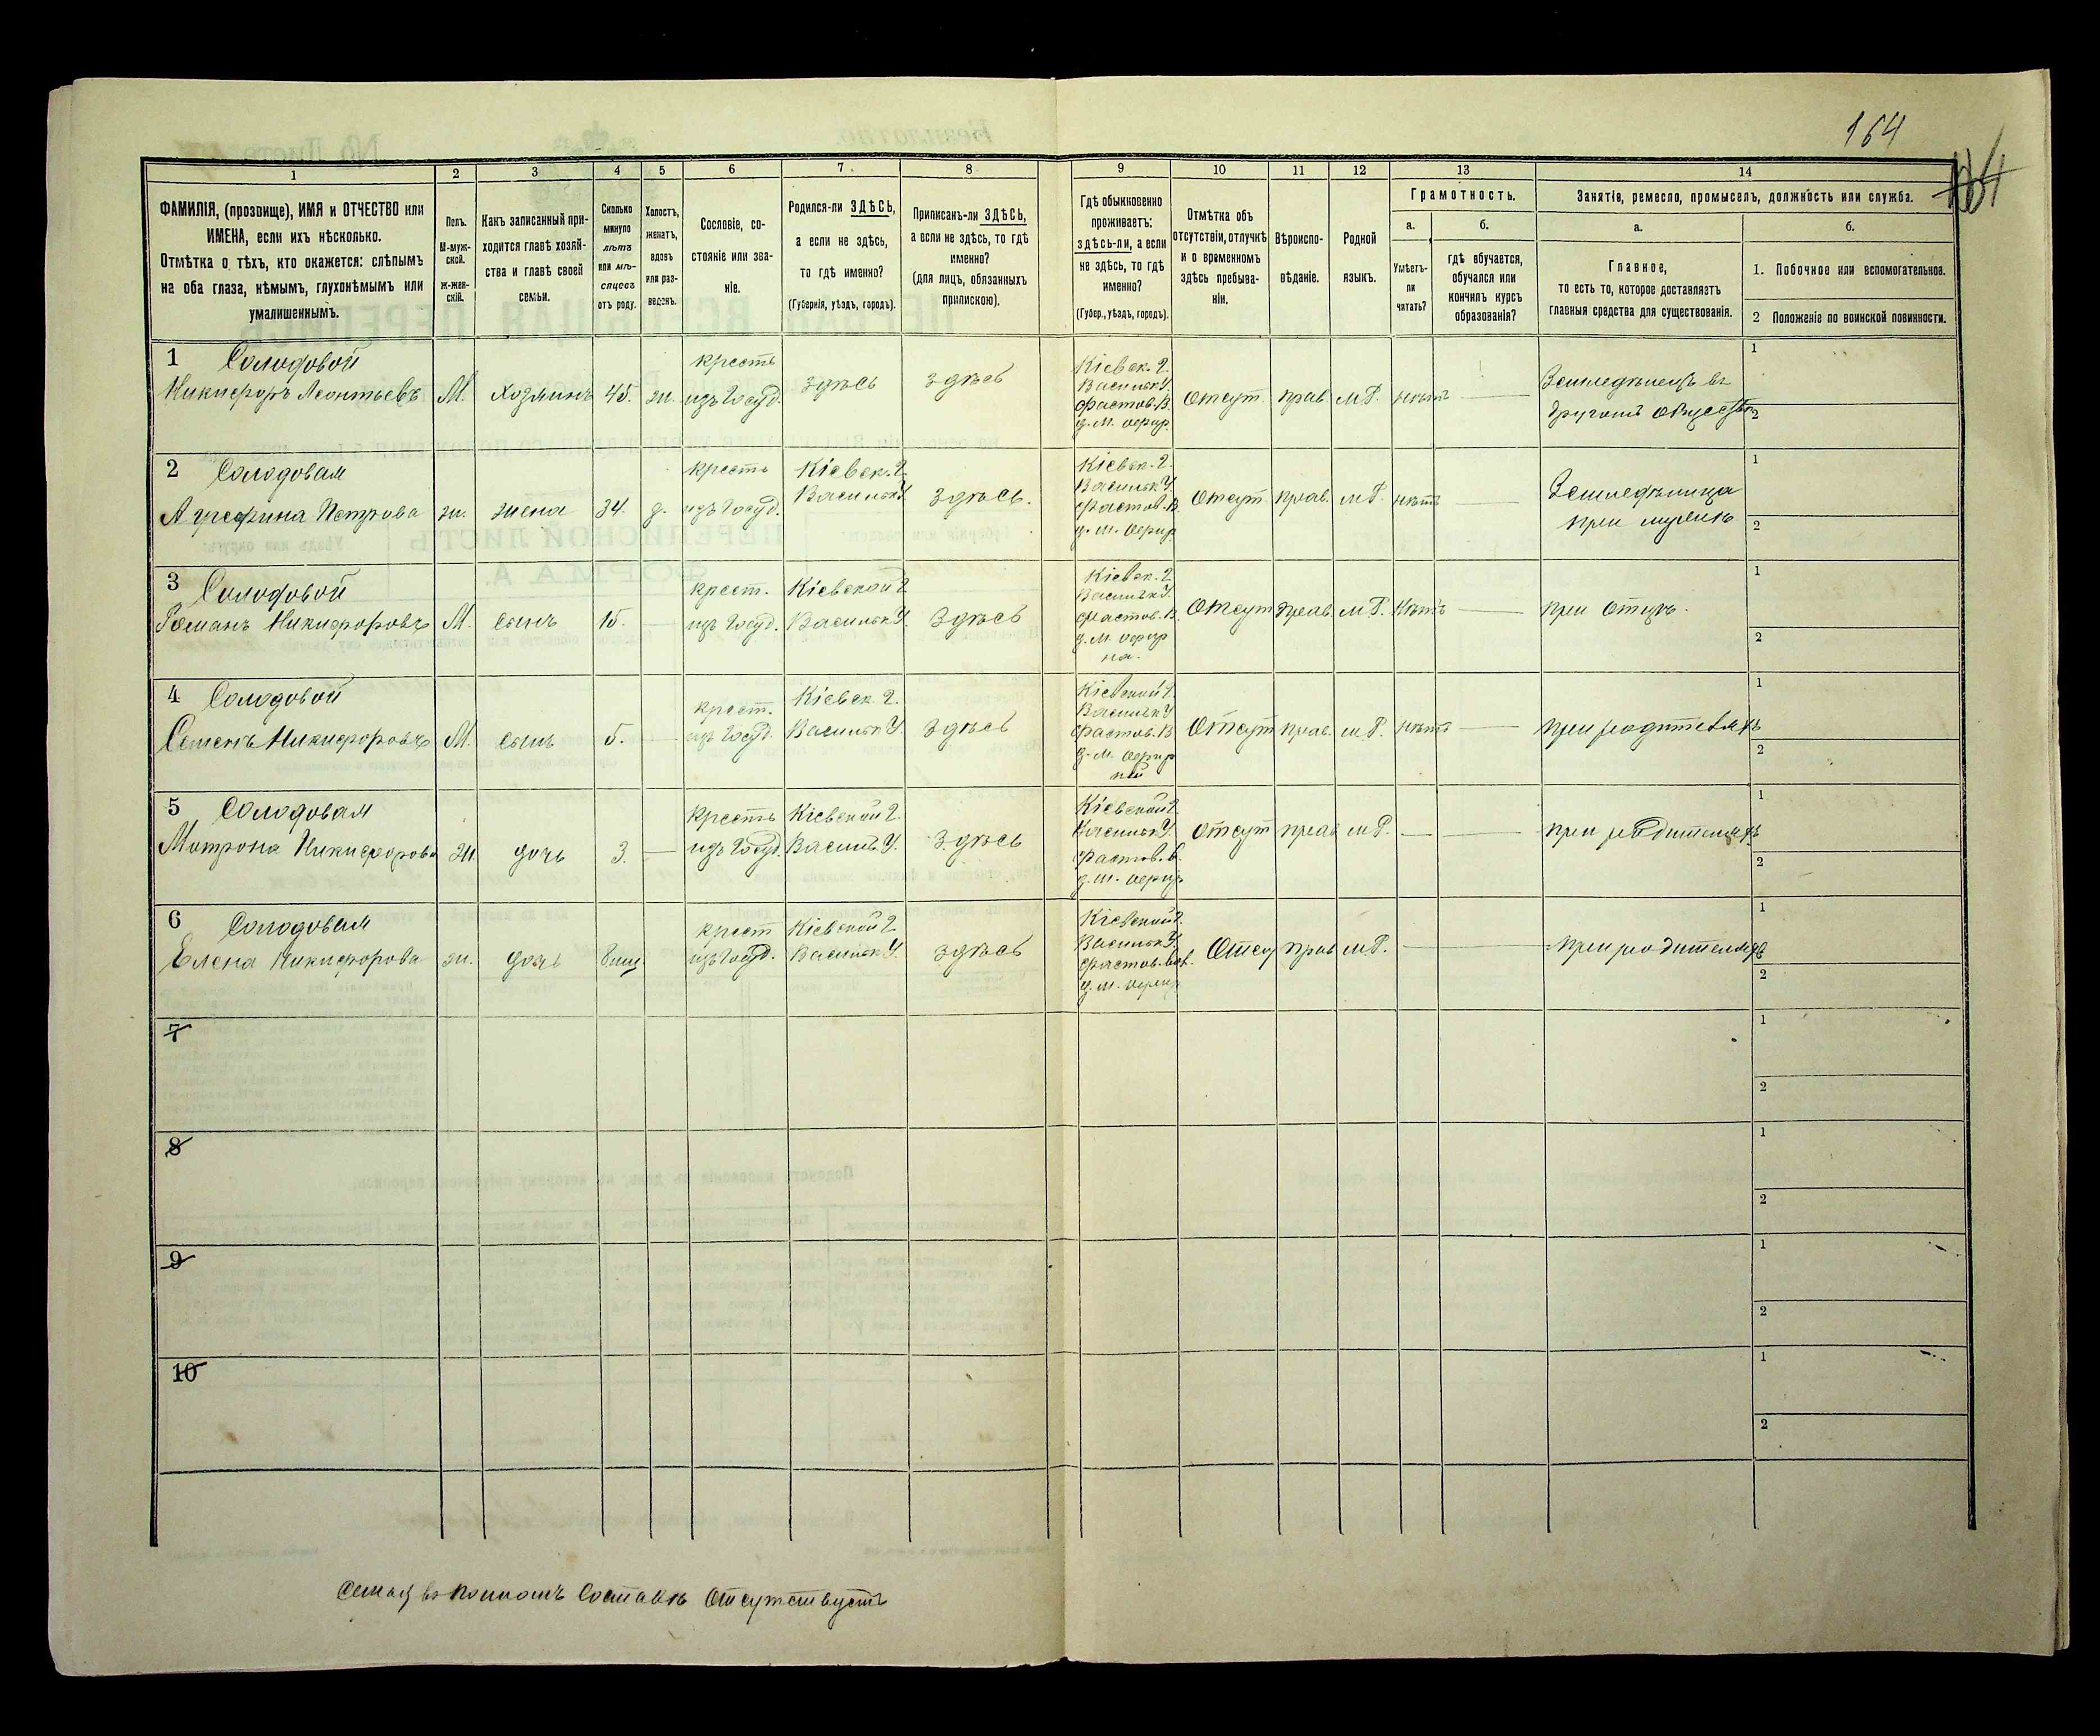 164
164
1
2
3
4
5
6
7
8
9
10
11
12
13
14
ФАМИЛІЯ, (прозвище), ИМЯ и ОТЧЕСТВО или
ИМЕНА, если ихъ нѣсколько.
Отмѣтка о тѣхъ, кто окажется: слѣпымъ
на оба глаза, нѣмымъ, глухонѣмымъ или
умалишеннымъ.
Полъ.
М-муж-
ской.
Ж-жен-
скій.
Какъ записанный при-
ходится главѣ хозяй-
ства и главѣ своей
семьи.
Сколько
минуло
лѣтъ
или мѣ-
сяцевъ
отъ роду.
Холостъ,
женатъ,
вдовъ
или раз-
веденъ.
Сословіе, со-
стояніе или зва-
ніе.
Родился-ли ЗДѢСЬ,
а если не здѣсь,
то гдѣ именно?
(Губернія, уѣздъ, городъ).
Приписанъ-ли ЗДѢСЬ,
а если не здѣсь, то гдѣ
именно?
(для лицъ, обязанныхъ
припискою).
Гдѣ обыкновенно
проживаетъ:
здѣсь-ли, а если
не здѣсь, то гдѣ
именно?
(Губер., уѣздъ, городъ).
Отмѣтка объ
отсутствіи, отлучкѣ
и о временномъ
здѣсь пребыва-
ніи.
Вѣроиспо-
вѣданіе.
Родной
языкъ.
Грамотность.
а.
б.
Умѣетъ-
ли
читать?
гдѣ обучается,
обучался или
кончилъ курсъ
образованія?
Занятія, ремесло, промыселъ, должность или служба.
а.
б.
Главное,
то есть то, которое доставляетъ
главныя средства для существованія.
1. Побочное или вспомогательное.
2 Положеніе по воинской повинности.
1 Солодовой
Никифоръ Леонтьевъ
М.
хозяинъ
45.
ж.
крестъ
изъ Госуд.
здѣсь
здѣсь
Кіевск. Г.
Васильк У.
Фастов. В.
д. М. Офир.
Отсут.
прав.
м Р.
нѣтъ
Земледѣлецъ въ
другомъ обществѣ
1
2
2 Солодовая
Агрефина Петрова
ж.
жена
34.
з.
крестъ
изъ Госуд.
Кіевск. Г.
Васильк У.
Здѣсь.
Кіевск. Г.
Васильк У.
Фастов. В.
д. М. Офир
Отсут.
прав.
м Р.
нѣтъ
Земледѣлица
при мужѣ
1
2
3 Солодовой
Романъ Никифоровъ
М.
сынъ
15.
крест.
изъ Госуд.
Кіевской Г.
Васильк У
Здѣсь
Кіевск. Г.
Васильк У.
Фастов. В.
д. М. Офир
на.
Отсут
прав.
м Р.
Нѣтъ
при Отцѣ.
1
2
4 Солодовой
Семенъ Никифоровъ
М.
сынъ
5.
крест.
изъ Госуд.
Кіевск. Г.
Васильк У.
здѣсь
Кіевской Г.
Васильк У
Фастов. В
д. М. Офир
ной
Отсут
прав.
м Р.
нѣтъ
при родителяхъ
1
2
5 Солодовая
Мотрона Никифорова
ж.
дочь
3.
крестъ
изъ Госуд.
Кіевской Г.
Васильк У.
Здѣсь
Кіевской Г.
Васильк У.
Фастов. В.
д. М. Офир
отсут
прав
м Р.
при родителяхъ
1
2
6 Солодовая
Елена Никифорова
ж.
дочь
8 мц
крест
изъ Госуд.
Кіевской Г.
Васильк У.
здѣсь
Кіевской Г.
Васильк У.
Фастов. вол.
д. М. Офир
Отсу
прав
м Р.
при родителяхъ
1
2
7
1
2
8
1
2
9
1
2
10
1
2
Семья въ полномъ составѣ Отсутствуетъ